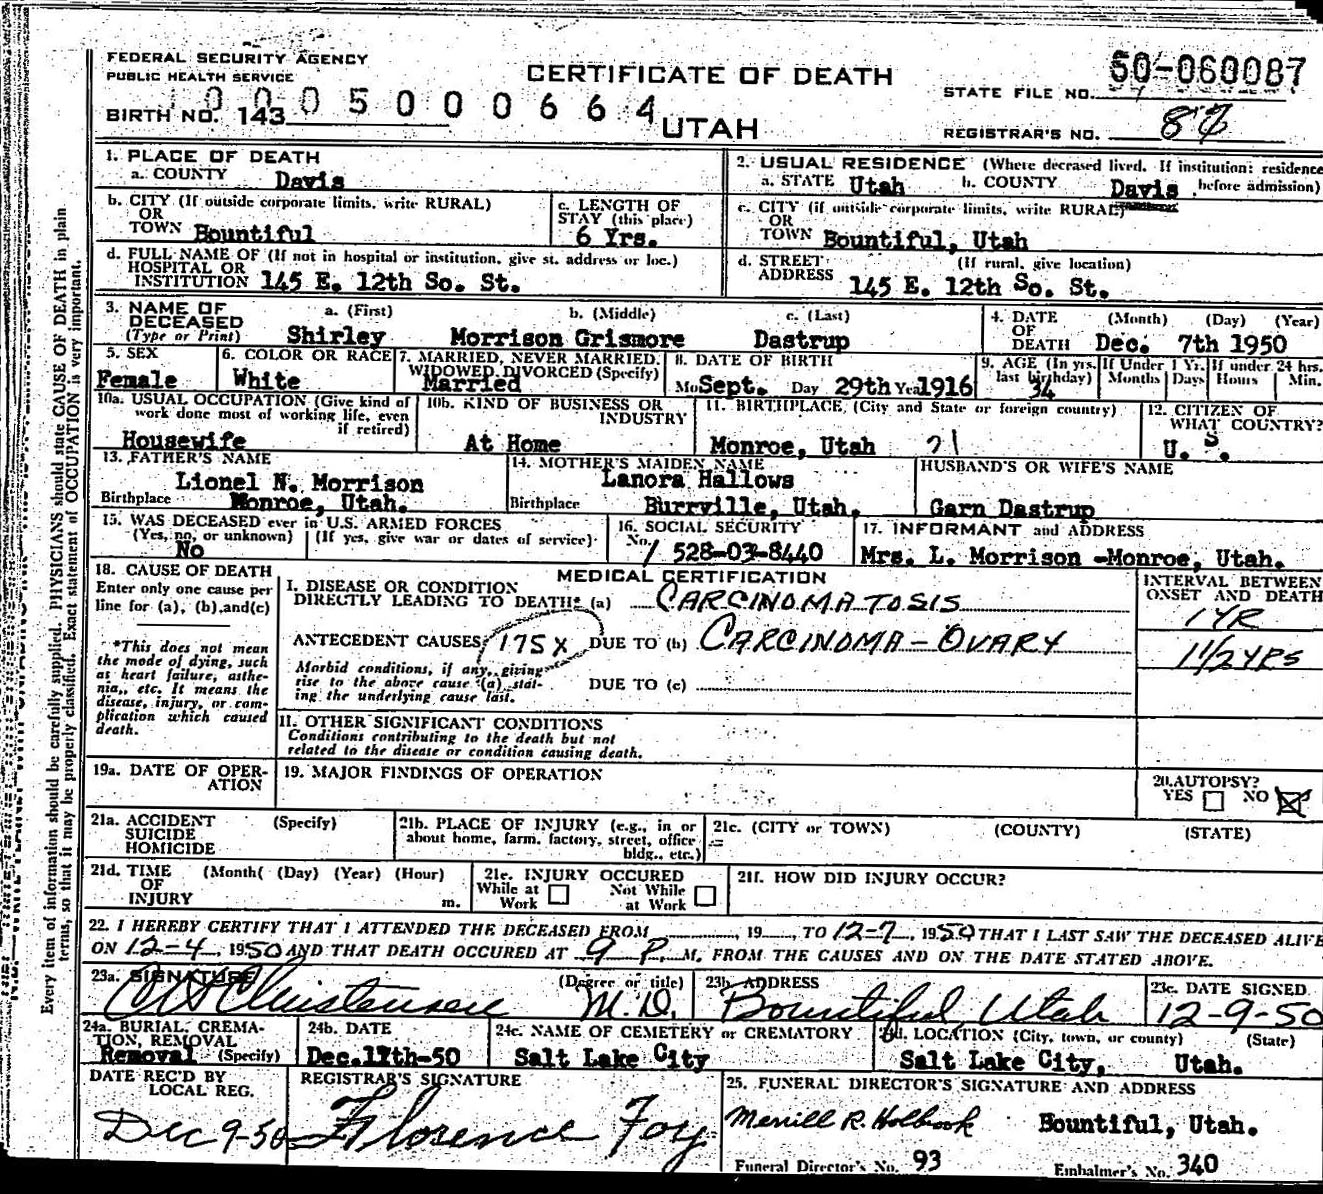 FEDERAL SECURITY AGENCY
PUBLIC HEALTH SERVICE
CERTIFICATE OF DEATH
50-060087
STATE FILE NO.
0005000664
BIRTH NO. 143
UTAH
REGISTRAR'S NO.
1. PLACE OF DEATH
a. COUNTY Davis
2. USUAL RESIDENCE (Where deceased lived. If institution: residence
a. STATE Utah b. COUNTY Davis before admission)
b. CITY (If outside corporate limits, write RURAL)
OR
TOWN Bountiful
c. LENGTH OF
STAY (this place)
6 Yrs.
c. CITY (if outside corporate limits, write RURAL)
OR
TOWN Bountiful, Utah
d. FULL NAME OF (If not in hospital or institution, give st. address or loc.)
HOSPITAL OR
INSTITUTION 145 E. 12th So. St.
d. STREET (If rural, give location)
ADDRESS 145 E. 12th So. St.
3. NAME OF a. (First) b. (Middle) c. (Last)
DECEASED
(Type or Print) Shirley Morrison Grismore Dastrup
4. DATE (Month) (Day) (Year)
OF
DEATH Dec. 7th 1950
5. SEX
Female
6. COLOR OR RACE
White
7. MARRIED, NEVER MARRIED,
WIDOWED, DIVORCED (Specify)
Married
8. DATE OF BIRTH
Mo Sept. Day 29th Year 1916
9. AGE (In yrs. last birthday)
34
If Under 1 Yr.
Months Days
If under 24 hrs.
Hours Min.
10a. USUAL OCCUPATION (Give kind of
work done most of working life, even
if retired)
Housewife
10b. KIND OF BUSINESS OR
INDUSTRY
At Home
11. BIRTHPLACE (City and State or foreign country)
Monroe, Utah
12. CITIZEN OF
WHAT COUNTRY?
U. S.
13. FATHER'S NAME
Lionel N. Morrison
Birthplace Monroe, Utah.
14. MOTHER'S MAIDEN NAME
Lanora Hallows
Birthplace Burrville, Utah.
HUSBAND'S OR WIFE'S NAME
Garn Dastrup
15. WAS DECEASED ever in U.S. ARMED FORCES
(Yes, no, or unknown) (If yes, give war or dates of service)
No
16. SOCIAL SECURITY
No. 528-03-8440
17. INFORMANT and ADDRESS
Mrs. L. Morrison -Monroe, Utah.
18. CAUSE OF DEATH
Enter only one cause per
line for (a), (b), and (c)
*This does not mean
the mode of dying, such
as heart failure, asthe-
nia,, etc. It means the
disease, injury, or com-
plication which caused
death.
MEDICAL CERTIFICATION
I. DISEASE OR CONDITION
DIRECTLY LEADING TO DEATH* (a) CARCINOMATOSIS
ANTECEDENT CAUSES 175X DUE TO (b) CARCINOMA - OVARY
Morbid conditions, if any, giving
rise to the above cause (a) stat-
ing the underlying cause last.
DUE TO (c)
INTERVAL BETWEEN
ONSET AND DEATH
1 YR
1 1/2 YRS
II. OTHER SIGNIFICANT CONDITIONS
Conditions contributing to the death but not
related to the disease or condition causing death.
19a. DATE OF OPER-
ATION
19. MAJOR FINDINGS OF OPERATION
20. AUTOPSY?
YES NO
21a. ACCIDENT (Specify)
SUICIDE
HOMICIDE
21b. PLACE OF INJURY (e.g., in or
about home, farm, factory, street, office
bldg., etc.)
21c. (CITY or TOWN) (COUNTY) (STATE)
21d. TIME (Month( (Day) (Year) (Hour)
OF
INJURY m.
21e. INJURY OCCURED
While at Work Not While at Work
21f. HOW DID INJURY OCCUR?
22. I HEREBY CERTIFY THAT I ATTENDED THE DECEASED FROM , 19 , TO 12-7, 1950 THAT I LAST SAW THE DECEASED ALIVE
ON 12-4, 1950 AND THAT DEATH OCCURED AT 9 P. M. FROM THE CAUSES AND ON THE DATE STATED ABOVE.
23a. SIGNATURE (Degree or title)
Christensen M.D.
23b. ADDRESS
Bountiful, Utah
23c. DATE SIGNED
12-9-50
24a. BURIAL, CREMA-
TION, REMOVAL
Removal (Specify)
24b. DATE
Dec. 11th-50
24c. NAME OF CEMETERY or CREMATORY
Salt Lake City
24d. LOCATION (City, town, or county) (State)
Salt Lake City, Utah.
DATE REC'D BY
LOCAL REG.
Dec 9-50
REGISTRAR'S SIGNATURE
Florence Foy
25. FUNERAL DIRECTOR'S SIGNATURE AND ADDRESS
Merrill R. Holbrook Bountiful, Utah.
Funeral Director's No. 93 Embalmer's No. 340
Every item of information should be carefully supplied. PHYSICIANS should state CAUSE OF DEATH in plain
terms, so that it may be properly classified. Exact statement of OCCUPATION is very important.